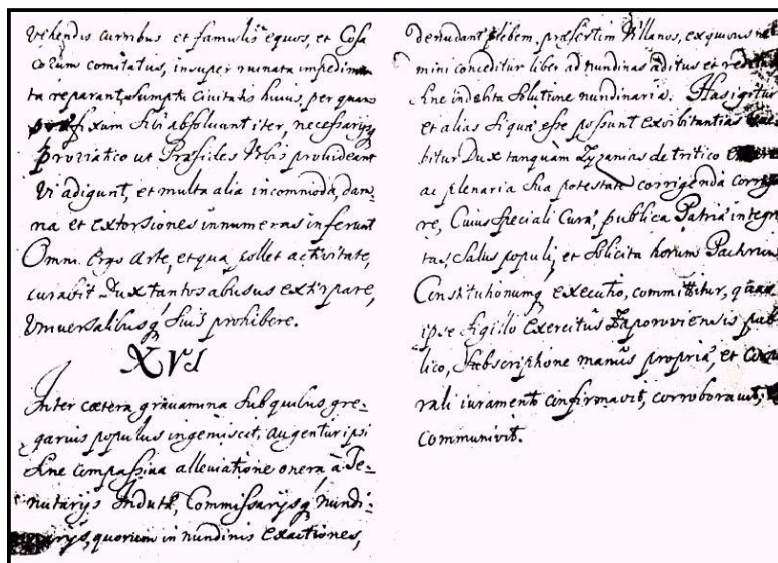 vehendis curribus et famulis equos, et Cosa
corum comitatus, insuper ruinata impedimen
ta reparant, sumptu Civitatis huius, per quam
fixum Sibi absolvunt iter, necessarijsq
proviatico ut Præsides Urbis provideant
vi adigunt, et multa alia incommoda, dam,
na et extorsiones innumeras inferunt
Omni ergo Arte, et qua pollet activitate,
curabit Dux tantos abusus extirpare,
Universalibusq Suis prohibere.
XVI
Inter cætera gravamina Sub quibus gre-
garius populus ingemiscit, augentur ipsi
Sine compassiva alleviatione onera, à Te-
nutarijs Indutæ, Commissarijsq nundi-
narijs, quorum in nundinis exactiones,
denudant plebem, præsertim Villanos, ex quorum ne
mini conceditur liber ad nundinas aditus et reditus
Sine indebita Solutione nundinaria. Has igitur
et alias Si quæ esse possunt exorbitantias
bitur Dux tanquam Zyzanias de tritico
ac plenaria Sua potestate corrigenda corrige
re, Cuius Speciali Cura, publica Patriæ integri
tas, Salus populi, et Solicita horum Pactorum
Constitutionumq executio, committitur, quam
ipse Sigillo Exercitus Zaporoviensis pub
lico, Subscriptione manus propria, et
rali iurament confirmavit, corroboravit,
communivit.